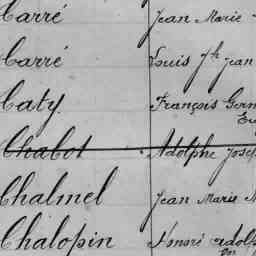 Carré Jean Marie
Carré Louis Jh Jean
Caty François Germ
Eu
Chabot Adolphe Josep
Chalmel Jean Marie M
Chalopin Honoré Adolp